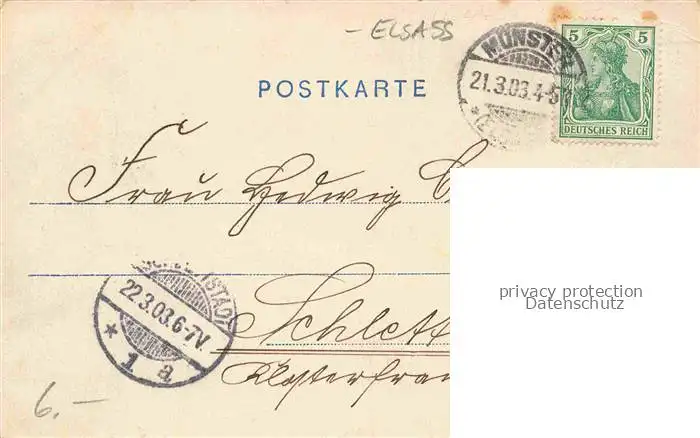 - ELSASS
MÜNSTER
21.3.03.4-5
POSTKARTE
5 5
DEUTSCHES REICH
Frau Hedwig
privacy protection
Datenschutz
SCHLETTSTADT
22.3.03.6-7V.
* 1 a
Schlett
Klosterfran
6.-